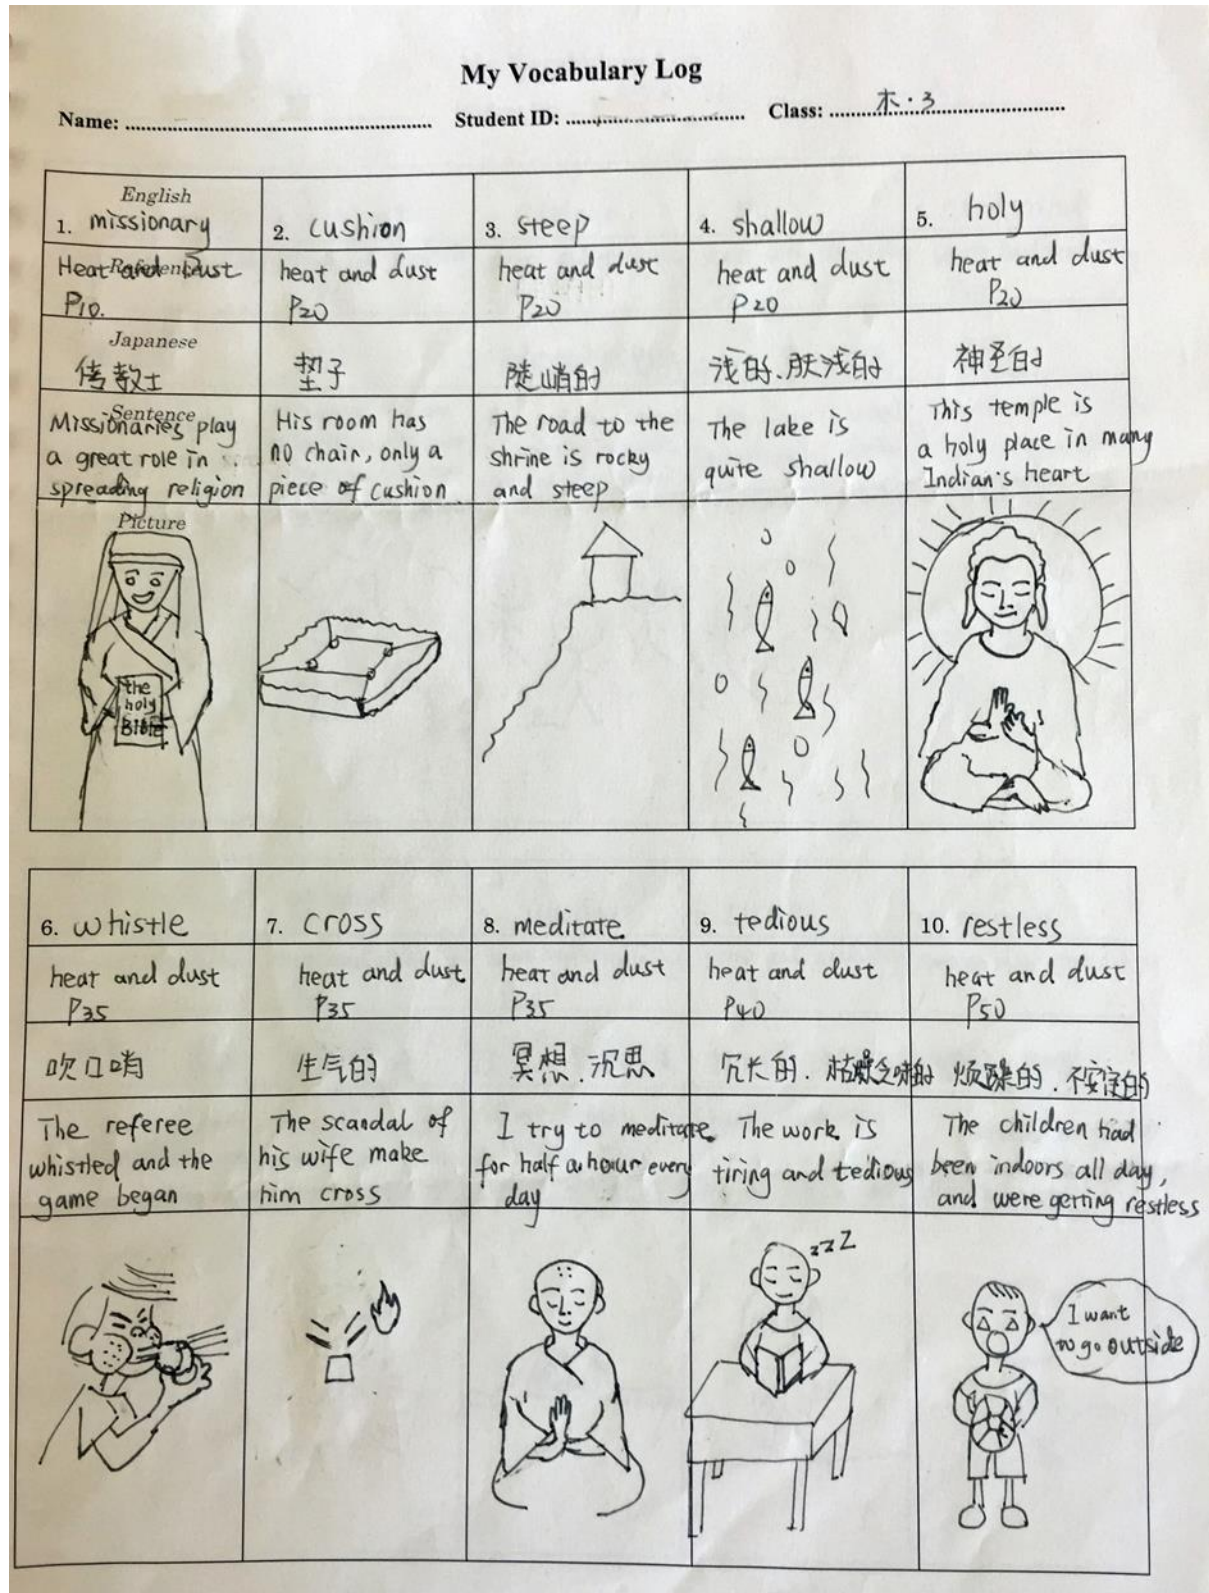 My Vocabulary Log
Name: Student ID: Class: 木·3
English
1. missionary
2. cushion
3. steep
4. shallow
5. holy
Reference
Heat and Dust
P10.
heat and dust
P20
heat and dust
P20
heat and dust
P20
heat and dust
P20
Japanese
传教士
垫子
陡峭的
浅的、肤浅的
神圣的
Sentence
Missionaries play
a great role in
spreading religion
His room has
no chair, only a
piece of cushion
The road to the
shrine is rocky
and steep
The lake is
quite shallow
This temple is
a holy place in many
Indian's heart
Picture
the
holy
Bible
6. whistle
7. cross
8. meditate
9. tedious
10. restless
heat and dust
P35
heat and dust
P35
heat and dust
P35
heat and dust
P40
heat and dust
P50
吹口哨
生气的
冥想、沉思
冗长的、枯燥乏味的
烦躁的、不安定的
The referee
whistled and the
game began
The scandal of
his wife make
him cross
I try to meditate
for half a hour every
day
The work is
tiring and tedious
The children had
been indoors all day,
and were getting restless
zzZ
I want
to go outside